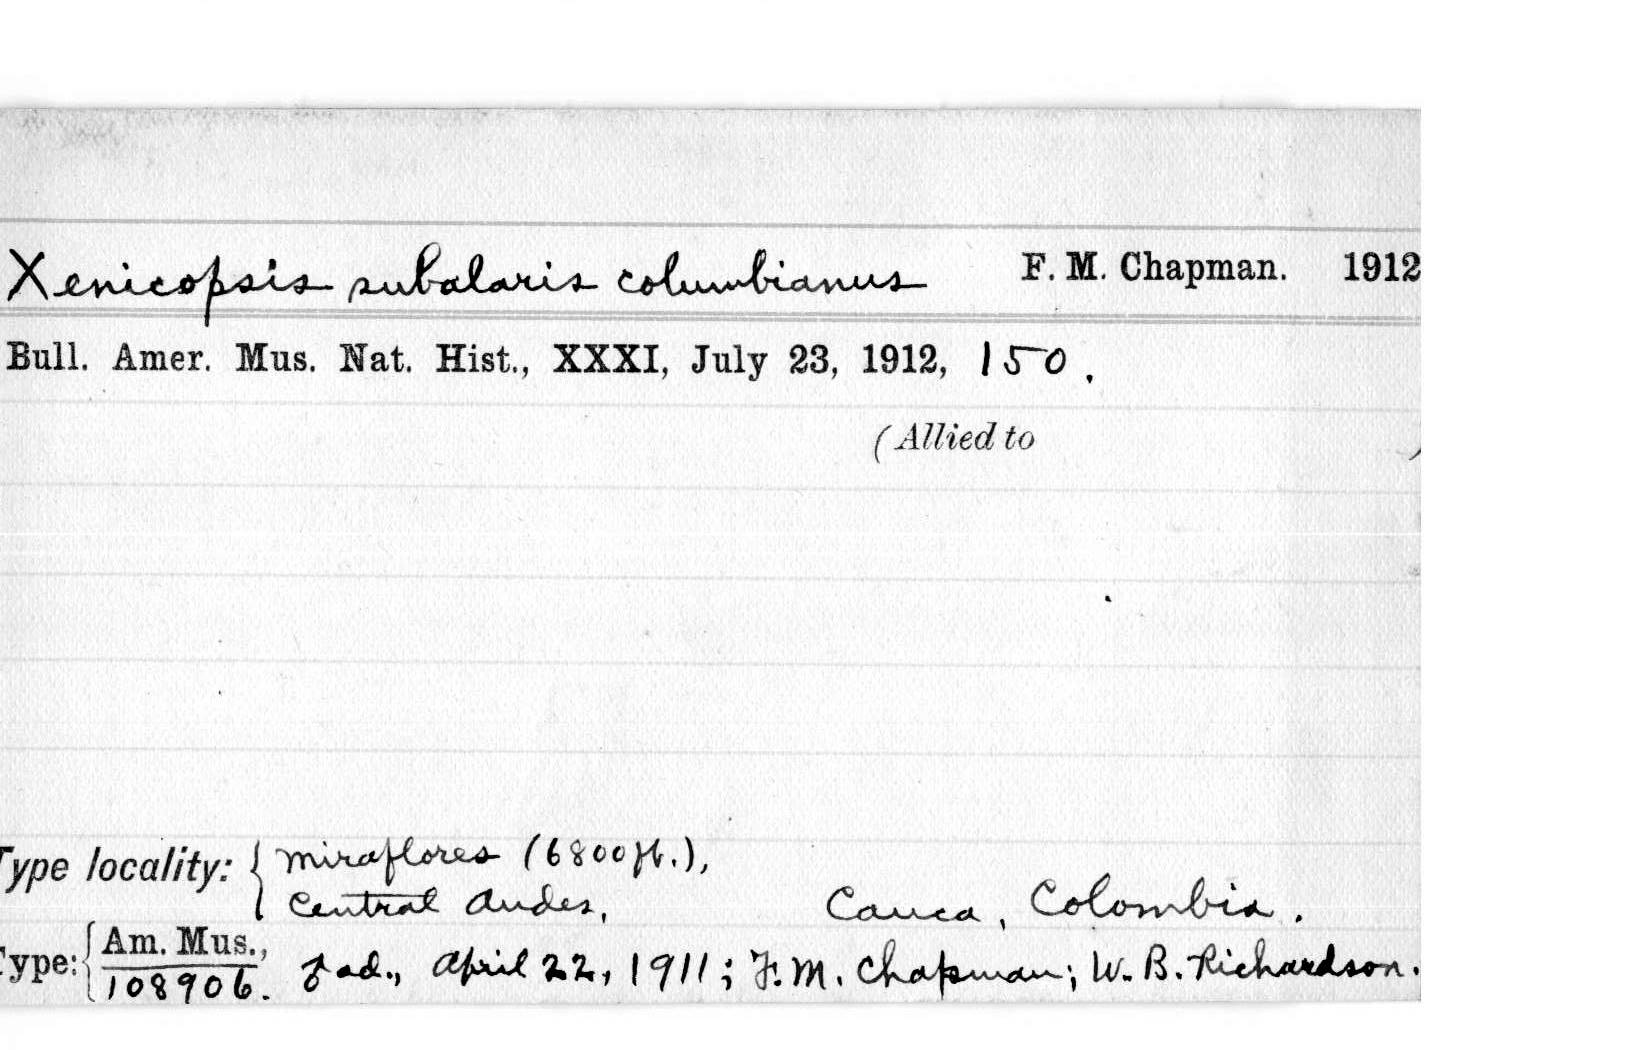 Xenicopsis subalaris columbianus F. M. Chapman. 1912
Bull. Amer. Mus. Nat. Hist., XXXI, July 23, 1912, 150.
(Allied to )
Type locality: { Miraflores (6800 ft.),
Central Andes, Cauca, Colombia.
Type: { Am. Mus.,
108906. ♂ ad., April 22, 1911; F. M. Chapman; W. B. Richardson.